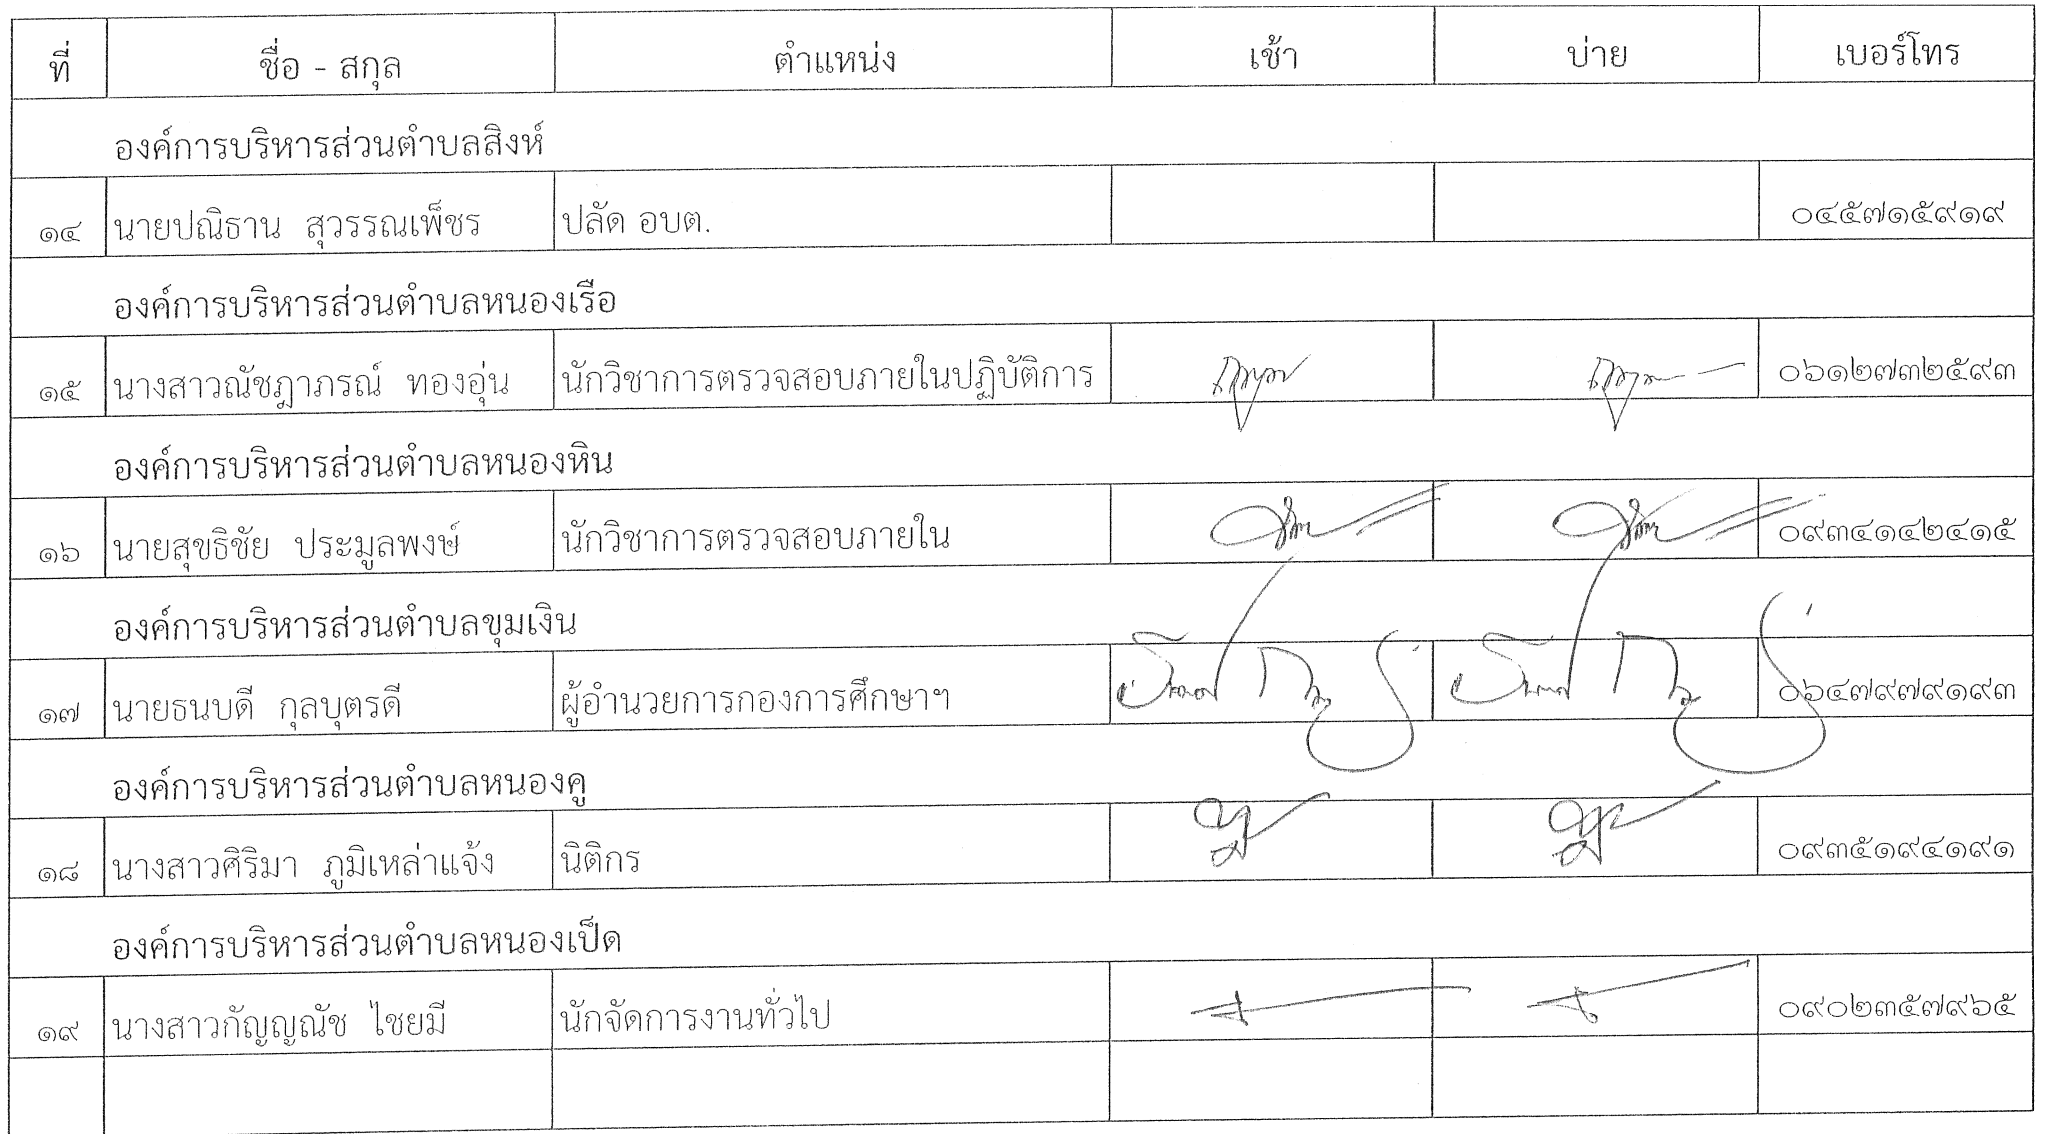 ที่ ชื่อ - สกุล ตำแหน่ง เช้า บ่าย เบอร์โทร
องค์การบริหารส่วนตำบลสิงห์
๑๔ นายปณิธาน สุวรรณเพ็ชร ปลัด อบต. ๐๔๕๗๑๕๙๑๙
องค์การบริหารส่วนตำบลหนองเรือ
๑๕ นางสาวณัชฎาภรณ์ ทองอุ่น นักวิชาการตรวจสอบภายในปฏิบัติการ ๐๖๑๒๗๓๒๕๙๓
องค์การบริหารส่วนตำบลหนองหิน
๑๖ นายสุขธิชัย ประมูลพงษ์ นักวิชาการตรวจสอบภายใน ๐๙๓๔๑๔๒๔๑๕
องค์การบริหารส่วนตำบลขุมเงิน
๑๗ นายธนบดี กุลบุตรดี ผู้อำนวยการกองการศึกษาฯ ๐๖๔๗๙๗๙๑๙๓
องค์การบริหารส่วนตำบลหนองคู
๑๘ นางสาวศิริมา ภูมิเหล่าแจ้ง นิติกร ๐๙๓๕๑๙๔๑๙๑
องค์การบริหารส่วนตำบลหนองเป็ด
๑๙ นางสาวกัญญณัช ไชยมี นักจัดการงานทั่วไป ๐๙๐๒๓๕๗๙๖๕